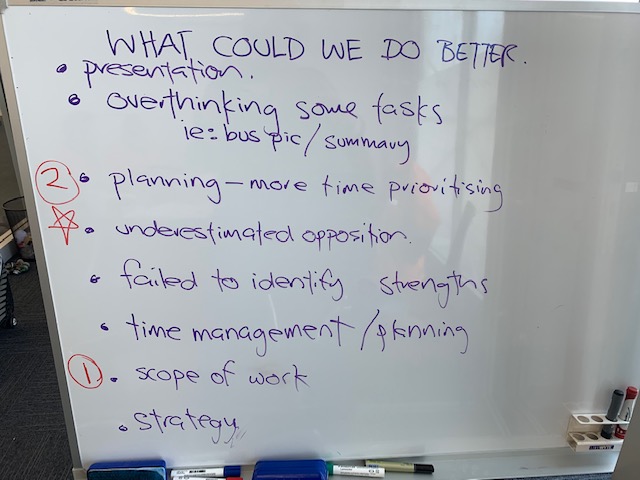 WHAT COULD WE DO BETTER.
• presentation.
• overthinking some tasks
ie: bus pic / summary
② • planning – more time prioritising
☆ • underestimated opposition.
• failed to identify strengths
• time management / planning
① • scope of work
• strategy